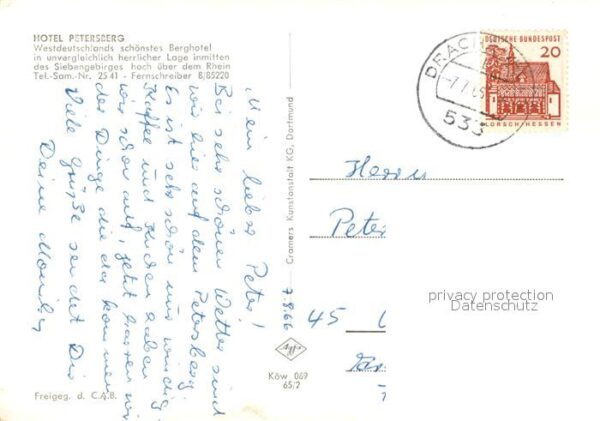 HOTEL PETERSBERG
Westdeutschlands schönstes Berghotel
in unvergleichlich herrlicher Lage inmitten
des Siebengebirges hoch über dem Rhein
Tel.-Sam.-Nr. 2541 - Fernschreiber 8/85220
Mein lieber Peter!
Bei sehr schönen Wetter sind
wir hier auf dem Petersberg
Es ist sehr schön nur windig
Kaffee und Kuchen haben
wir schon auf, jetzt harren wir
der Dinge die da kommen
Viele Grüße sendet Dir
Deine
7.8.66
Cramers Kunstanstalt KG, Dortmund
Agfa
Köw 069
65/2
Freigeg. d. C.A.B.
DEUTSCHE BUNDESPOST
20
LORSCH-HESSEN
533
Herrn
Peter
45
privacy protection
Datenschutz